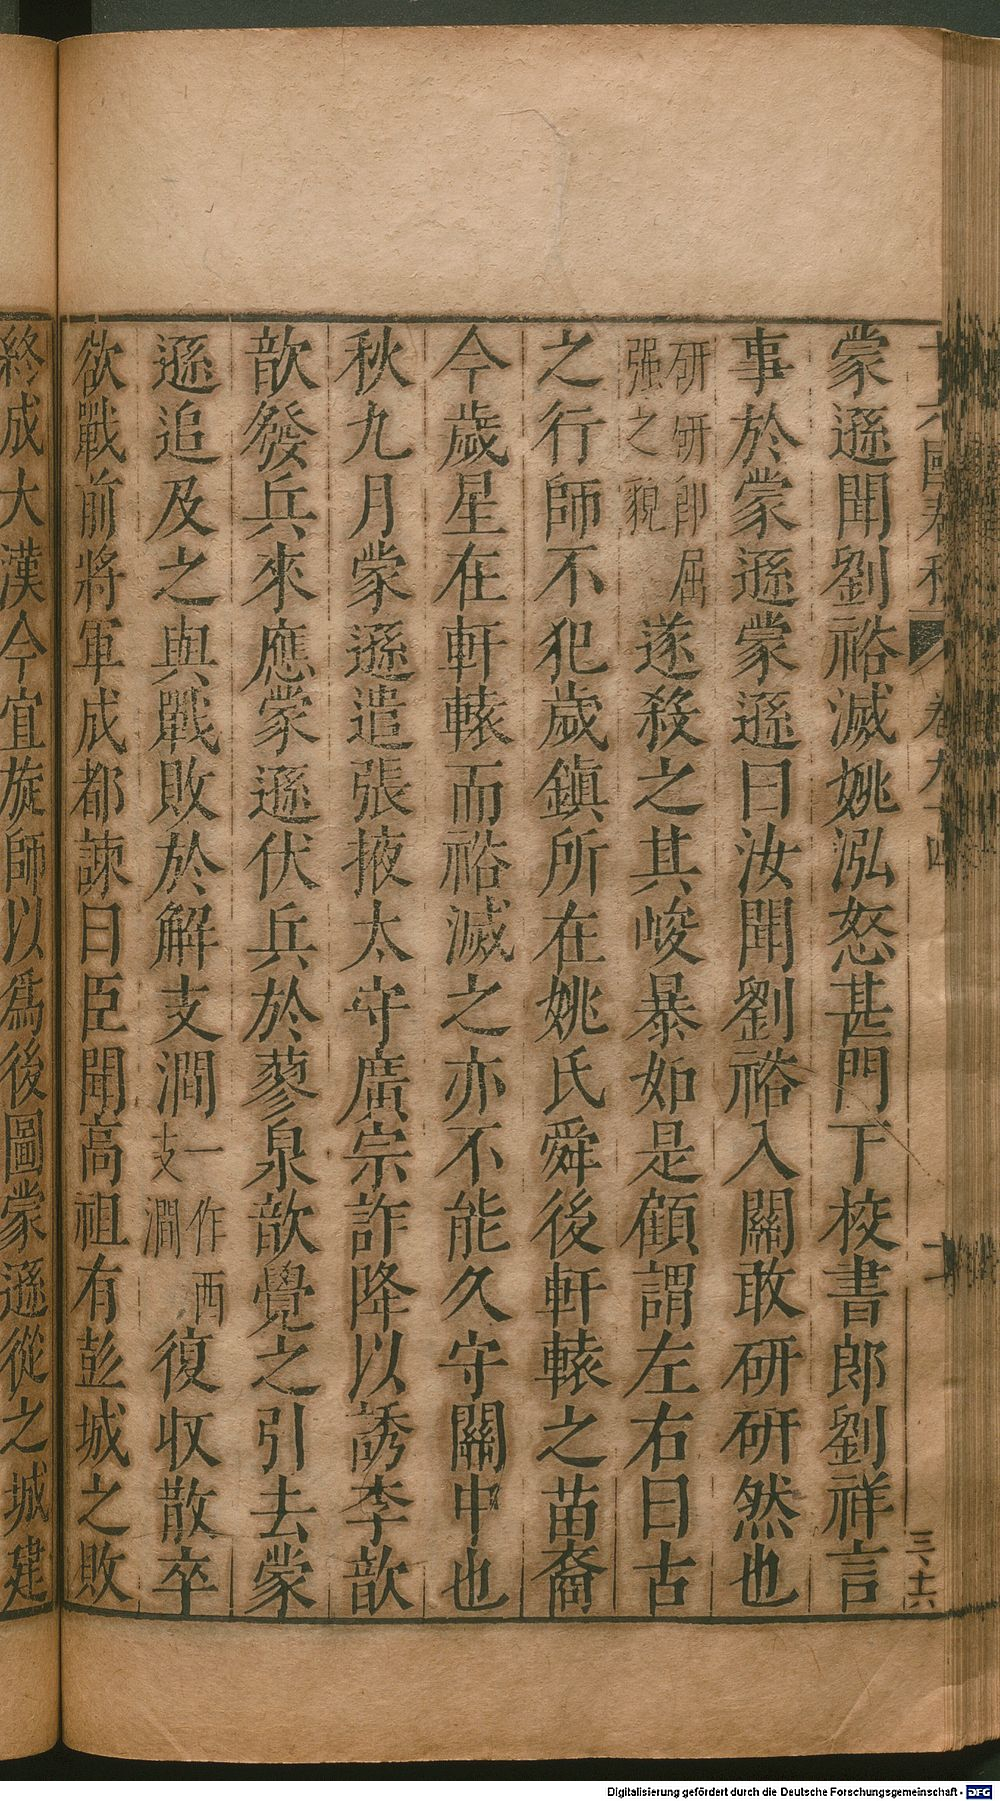 蒙遜聞劉裕滅姚泓怒甚門下校書郎劉祥言
事於蒙遜蒙遜曰汝聞劉裕入關敢研研然也
研研即屈
强之貌
遂殺之其峻暴如是顧謂左右曰古
之行師不犯歲鎮所在姚氏舜後軒轅之苗裔
今歲星在軒轅而裕滅之亦不能久守關中也
秋九月蒙遜遣張掖太守廣宗詐降以誘李歆
歆發兵來應蒙遜伏兵於蓼泉歆覺之引去蒙
遜追及之與戰敗於解支澗
一作西
支澗
復収散卒
欲戰前將軍成都諫曰臣聞高祖有彭城之敗
終成大漢今宜旋師以爲後圖蒙遜從之城建
三十六
Digitalisierung gefördert durch die Deutsche Forschungsgemeinschaft - DFG